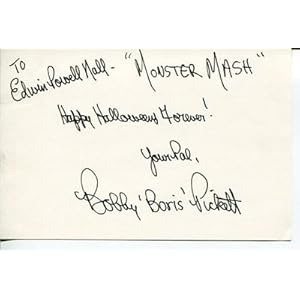 TO
Edwin Powell Hall - "MONSTER MASH"
Happy Halloweens Forever!
Your Pal,
Bobby 'Boris' Pickett